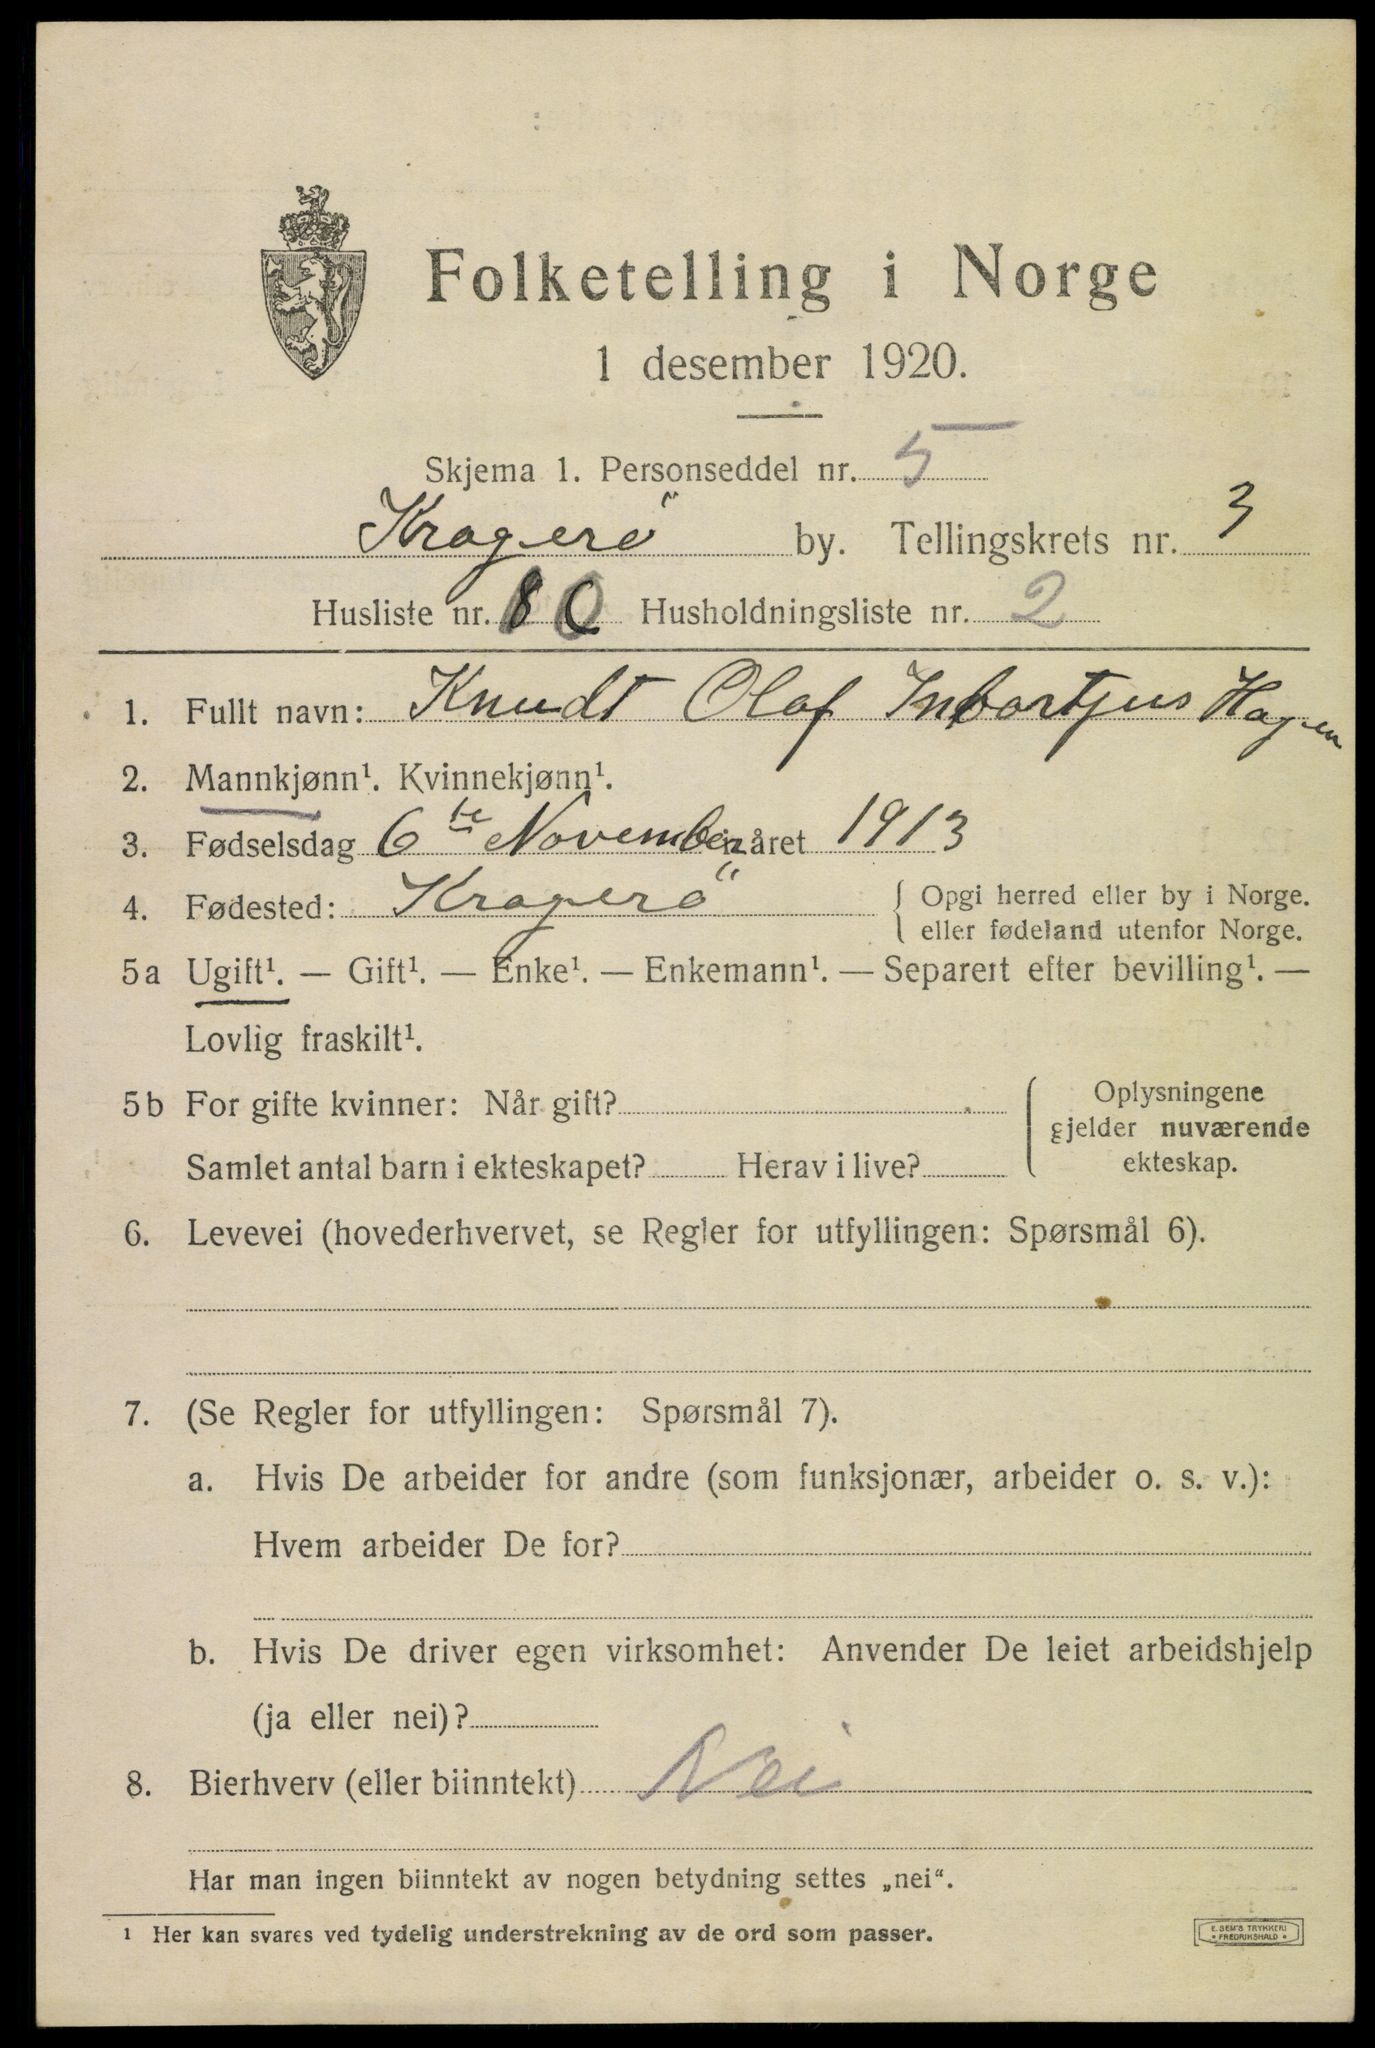 Folketelling i Norge
1 desember 1920.
Skjema 1. Personseddel nr. 5
Kragerö by. Tellingskrets nr. 3
Husliste nr. Husholdningsliste nr. 2
1. Fullt navn: Knudt Olaf Hagen
2. Mannkjønn¹. Kvinnekjønn¹.
3. Fødselsdag 6te November i året 1913
4. Fødested: Kragerö { Opgi herred eller by i Norge.
eller fødeland utenfor Norge.
5a Ugift¹. — Gift¹. — Enke¹. — Enkemann¹. — Separert efter bevilling¹. —
Lovlig fraskilt¹.
5b For gifte kvinner: Når gift?
Samlet antal barn i ekteskapet? Herav i live?
Oplysningene
gjelder nuværende
ekteskap.
6. Levevei (hovederhvervet, se Regler for utfyllingen: Spørsmål 6).
7. (Se Regler for utfyllingen: Spørsmål 7).
a. Hvis De arbeider for andre (som funksjonær, arbeider o. s. v.):
Hvem arbeider De for?
b. Hvis De driver egen virksomhet: Anvender De leiet arbeidshjelp
(ja eller nei)?
8. Bierhverv (eller biinntekt) Nei
Har man ingen biinntekt av nogen betydning settes „nei“.
¹ Her kan svares ved tydelig understrekning av de ord som passer.
E. SEM'S TRYKKERI
• FREDRIKSHALD •